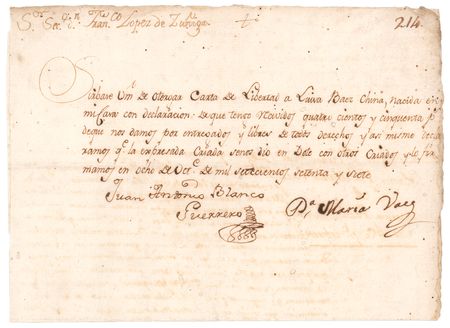 Sor. Srio. dn. Franco. Lopez de Zuñiga 214.
Sirbase Vm. De Otorgar Carta De Libertad a Luisa Baez China, nacida en
mi Casa con declaracion De que tengo Resividos quatro cientos y cinquenta p
de que nos damos por entregados y libres de todos derechos y asi mismo decla
ramos qe. la expresada Criada senos dio en Dote con otros Criados y lo fir
mamos en ocho de Ote. De mil setecientos setenta y siete
Juan Antonio Blanco
Guerrero
Da. Maria Vaez